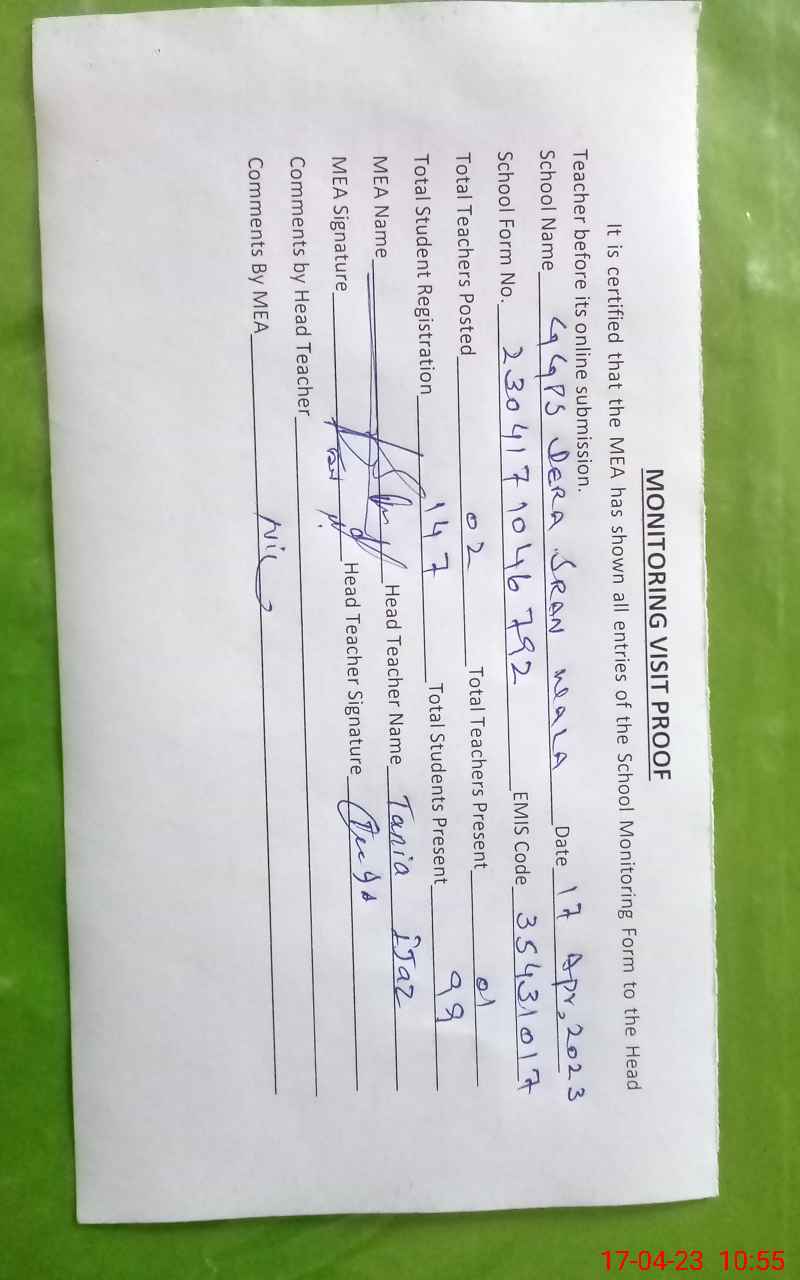 MONITORING VISIT PROOF
It is certified that the MEA has shown all entries of the School Monitoring Form to the Head
Teacher before its online submission.
School Name GGPS DERA JRAN WALA Date 17 Apr, 2023
School Form No. 2304171046792 EMIS Code 35431017
Total Teachers Posted 02 Total Teachers Present 01
Total Student Registration 147 Total Students Present 99
MEA Name Head Teacher Name Tania iJaz
MEA Signature Head Teacher Signature
Comments by Head Teacher
Comments By MEA Nil
17-04-23 10:55